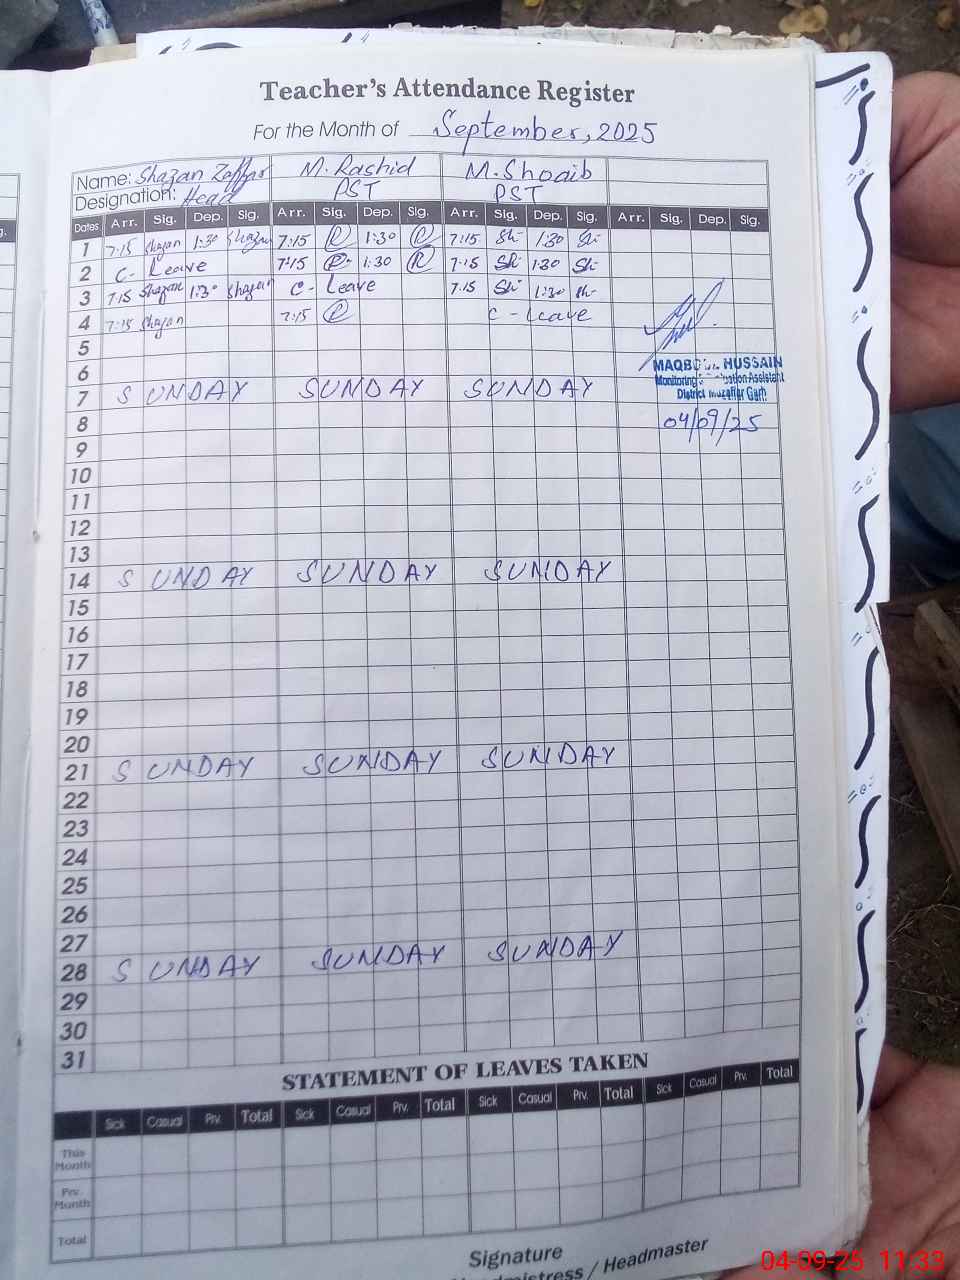 Teacher's Attendance Register
For the Month of September, 2025
Name: Shazan Zaffar M. Rashid M. Shoaib
Designation: Head PST PST
Dates Arr. Sig. Dep. Sig. Arr. Sig. Dep. Sig. Arr. Sig. Dep. Sig. Arr. Sig. Dep. Sig.
1 7:15 Shazan 1:30 Shazan 7:15 R 1:30 R 7:15 Sh 1:30 Sh
2 C- Leave 7:15 R 1:30 R 7:15 Sh 1:30 Sh
3 7:15 Shazan 1:30 Shazan C- Leave 7:15 Sh 1:30 Sh
4 7:15 Shazan 7:15 R C - Leave
5
6
MAQBOOL HUSSAIN
Monitoring Assistant
District Muzaffar Garh
7 SUNDAY SUNDAY SUNDAY
8 04/09/25
9
10
11
12
13
14 SUNDAY SUNDAY SUNDAY
15
16
17
18
19
20
21 SUNDAY SUNDAY SUNDAY
22
23
24
25
26
27
28 SUNDAY SUNDAY SUNDAY
29
30
31
STATEMENT OF LEAVES TAKEN
Sick Casual Prv. Total Sick Casual Prv. Total Sick Casual Prv. Total Sick Casual Prv. Total
This Month
Prv. Month
Total
Signature
/ Headmaster
04-09-25 11:33